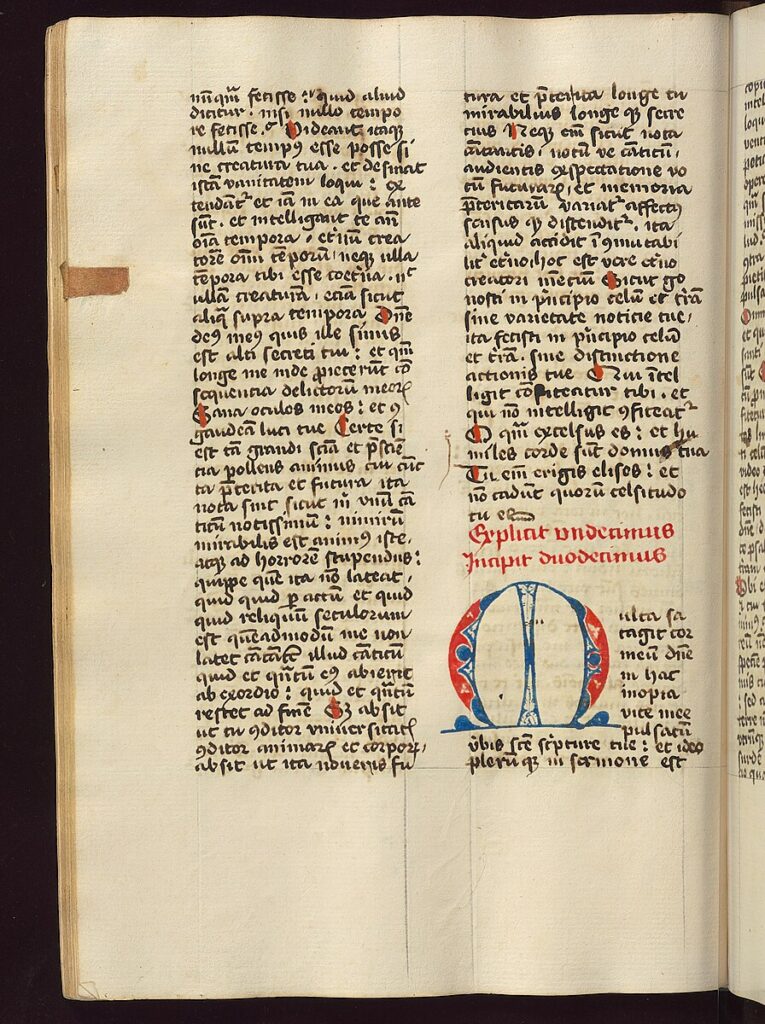 nu̅q̅m fecisse : quid aliud
dicitur nisi nullo tempo
re fecisse . Videant itaq̨
nullu̅ tempus esse posse si
ne creatura tua . et desinat
ista̅ vanitatem loqui : ex
tendant᷑ et ia̅ in ea que ante
su̅t . et intelligant te an̅
o̅ia tempora . et̅nu̅ crea
tore̅ om̅i tempor̅u̅ . neq̨ ulla
te̅pora tibi esse coet̅na . n̅c
ulla̅ creatura̅ , ecia̅ si aut
aliq̅ supra tempora D̅ne
de9 me9 quis ille sinus
est alti secreti tui : et q̅m
longe me inde p̅iecer̅ut co̅
sequencia delictorum meor̨
Sana oculos meos : et 9
gaudea̅ luci tue Certe si
est ta̅ grandi sci̅a et p̅scie̅
cia pollens animus cui cu̅c
ta p̅terita et futura ita
nota sint sicut m̅ vnu̅ ca̅
ticu̅ notissimu̅ : nimiru̅
mirabilis est anim9 iste ,
atq̨ ad horrore̅ stupendus :
quippe que̅ ita no̅ lateat ,
quid quid p̲actu̅ et quid
quid reliquu̅ seculorum
est que̅admodu̅ me non
latet ca̅ta̅te̅ illud ca̅ticu̅
quid et qu̅tu̅ e9 abierit
ab exordio : quid et qu̅tu̅
restet ad fine̅ S̨ absit
ut tu 9ditor vniuersitat̨
9ditor animar̨ et corpor̨ ,
absit ut ita noueris fu
tura et p̅terita longe tu
mirabilius longe q̨ secre
cius Neq̨ em̅ sicut nota
ca̅tantis , notu̅ ve ca̅ticu̅
audientis exspectatione vo
cu̅ futurar̨ , et memoria
p̅teritaru̅ variat᷑ affect9
sensus q̨ distendit᷑ , ita
aliquid accidit i̅9mutabi
lit᷑ et̅no , hoc est vere et̅no
creatori me̅ciu̅ Sicut g̊
nosti in p̅ncipio celu̅ et t̅ra̅
sine varietate noticie tue ,
ita fecisti in p̅ncipio celu̅
et t̅ra̅ . sine distinctione
actionis tue Qui i̅tel
ligit co̅fiteatur tibi . et
qui no̅ intelligit 9fiteat᷑
O q̅m excelsus es : et hu
miles corde su̅t domus tua
Tu em̅ erigis elisos : et
no̅ cadu̅t quorum celsitudo
tu es
Explicit vndecimus
Incipit duodecimus
Multa sa
tagit cor
meu̅ d̅ne
in hac
inopia
vite mee
pulsatu̅
v̅bis sc̅e sc̅pture tue : et ideo
pleru̅q̨ in sermone est